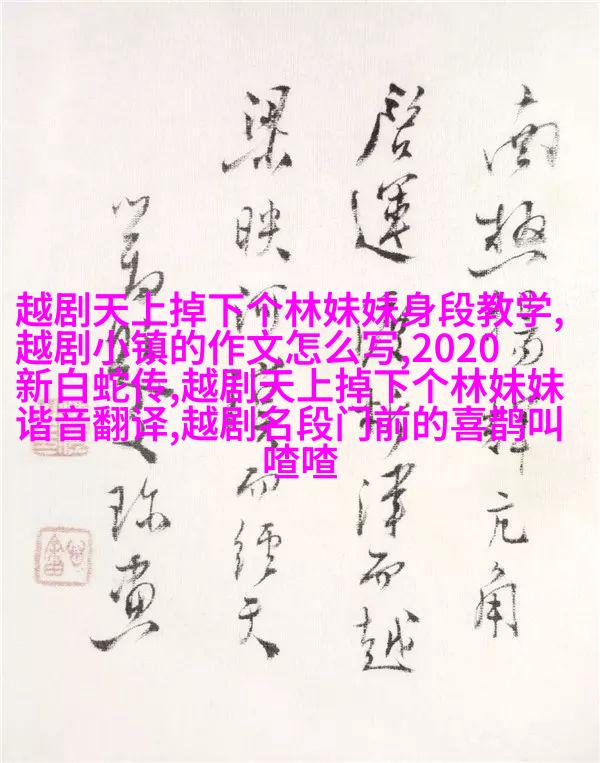 越剧天上掉下个林妹妹身段教学,
越剧小镇的作文怎么写,2020
新白蛇传,越剧天上掉下个林妹妹
谐音翻译,越剧名段门前的喜鹊叫
喳喳
南極亢角
啓運析津而越
梁映河漢而經天
之琛